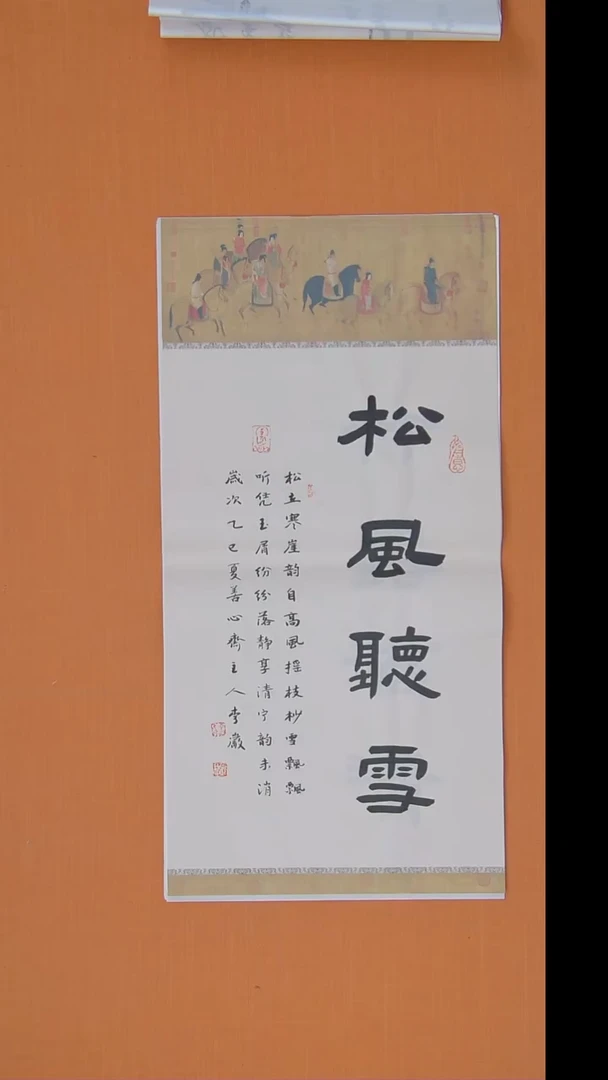 松風聽雪
松立寒崖韵自高风摇枝杪雪飘飘
听凭玉屑纷纷落静享清宁韵未消
歲次乙巳夏善心齋主人李巖